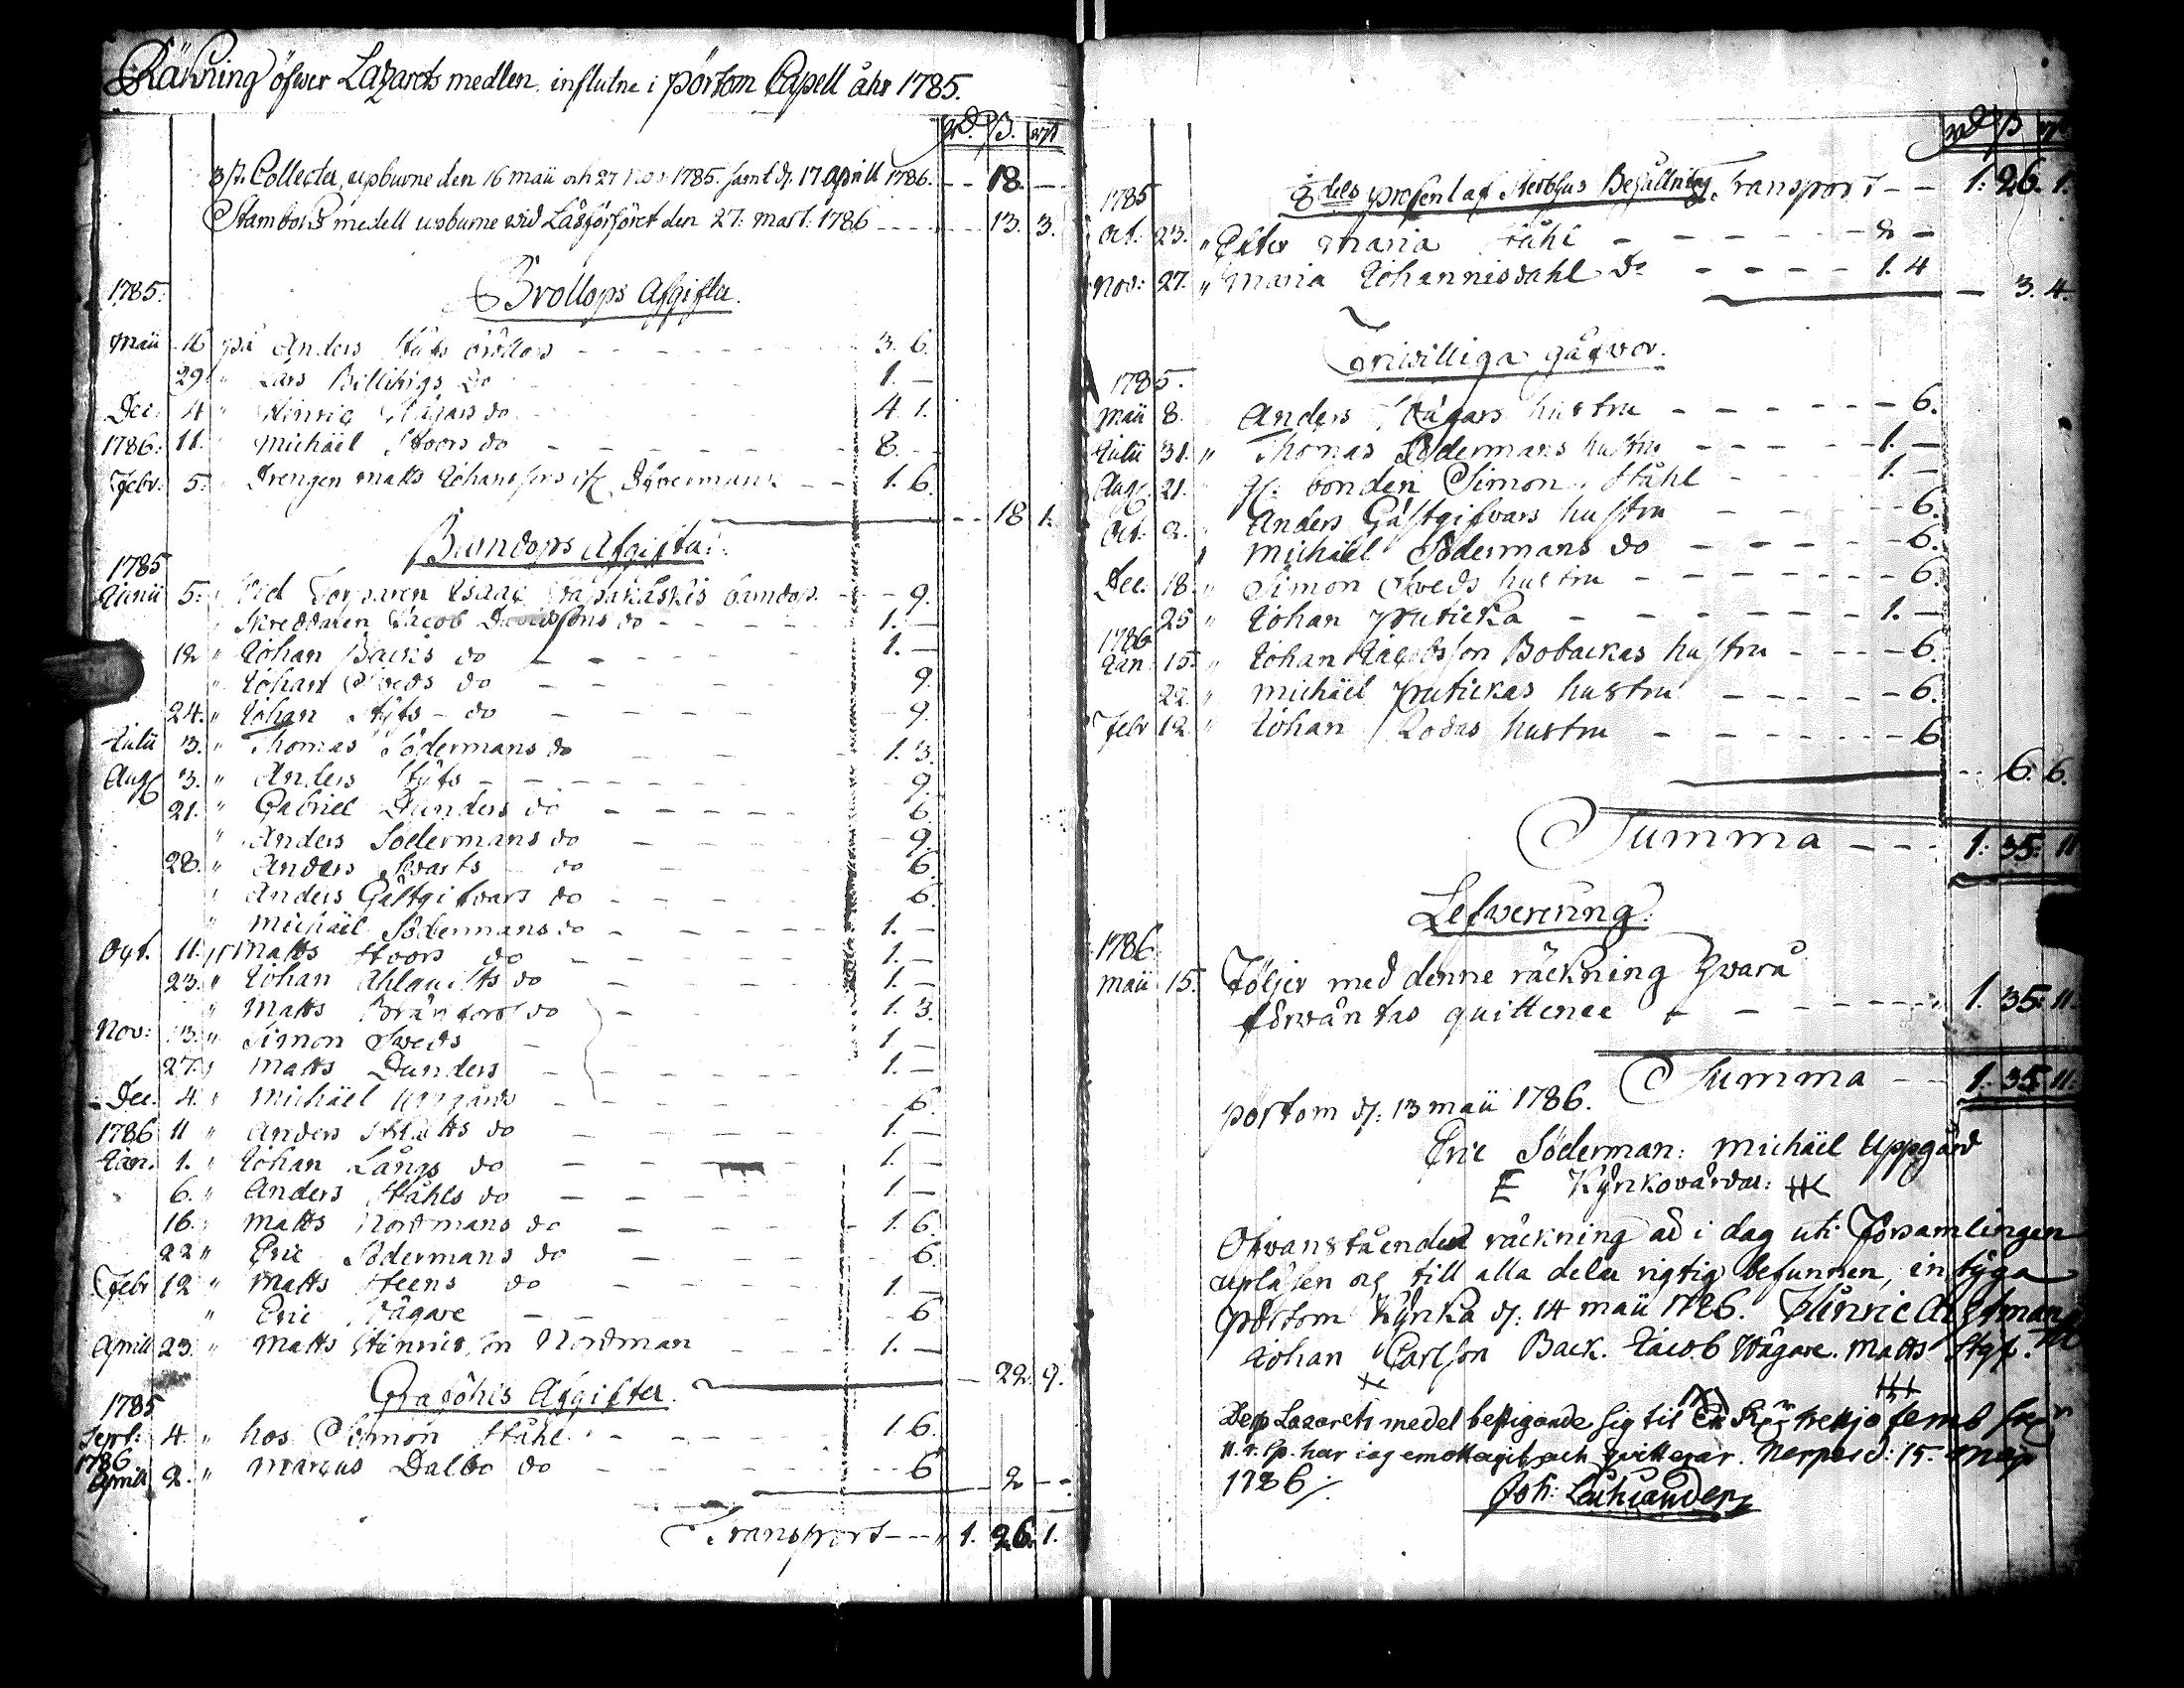 Räkning öfwer Lazarets medlen, influtne i Pörtom Capell åhr 1785.
Rd. ß. rst
3 st. Collecter, upburne den 16 maii och 27 Nov. 1785. samt d. 17 aprill 1786. -- 18. --
Stambors medell upburne wid Läsförhöret den 27. mart. 1786 ---- 13. 3.
1785. Bröllops Afgifter.
Maii 16 på Anders bröllop - - - 3. 6.
29 " Lars do - - - 1. -
Dec: 4 " Hinric do - - - 4. 1.
1786: 11. " Michäel Stoors do - - - 8. -
Febr: 5. " Drengen Matts Johanssons - - 1. 6.
-- 18 1.
Barndops Afgifter.
1785
Junii 5. " Wid Torparen Isaac barndop. - - - 9.
" Skreddaren Jacob Davidssons do - - - 1. -
12 " Johan Backs do - - - 1. -
" Johan Sveds do - - - 9.
24. " Johan do - - - 9.
Julii 3. " Thomas Södermans do - - 1. 3.
Aug 3. " Anders - - - 9.
21. " Gabriel Dunders do - - - 6.
" Anders Södermans do - - - 9.
28. " Anders Swarts do 6.
" Anders Gästgifvars do - - - 6.
" Michäel Södermans do - - - 1. -
Oct. 11. " Matts Stoors do - - - 1. -
23. " Johan Ahlquists do - - - 1. -
" Matts do - - - 1. 3.
Nov: 13. " Simon Sweds - - - 1. -
27. " Matts Dunders - - - 1. -
Dec. 4. " Michäel Uppgårds - - - 6.
1786 11 " Anders do - - - 1. -
Jan. 1. " Johan Långs do - - - 1. -
6. " Anders Ståhls do - - - 1. -
16. " Matts Nordmans do - - - 1. 6.
22 " Eric Södermans do - - - 6.
Febr 12 " Matts Steens do - - - 1. -
" Eric Wägare - - - 6
Aprill 23. " Matts Hinricsson Nordman - - - 1. -
- 22. 9.
1785 Graföhls Afgifter.
Sept: 4. " hos Simon Ståhl - - - 1 6.
1786
Aprill 2. " Marcus Dalbo do - - - 6
2 --
Transport --- 1. 26. 1.
Rd ß
1785 dels procent af Sterbhus Behållning. Transport - - 1: 26. 1.
Oct: 23. " Efter Maria Ståhl - - - 2 -
Nov: 27. " Maria Johannisdahl Do - - - 1. 4
- 3. 4.
Friwilliga gåfwor.
1785.
Maii 8. Anders Wägars hustru - - - 6.
Julii 31. " Thomas Södermans hustru - - - 1. -
Aug. 21. " bonden Simon Ståhl - - - 1. -
Oct: 2. " Anders Gästgifvars hustru - - - 6.
" Michäel Södermans do - - - 6.
Dec. 18. " Simon Sveds hustru - - - 6.
25 " Johan - - - 1. -
1786
Jan: 15. " Johan Jacobsson Bobackas hustru - - - 6.
22. " Michäel hustru - - - 6.
Febr 12. " Johan Rodas hustru - - - 6
-- 6. 6.
Summa --- 1: 35: 11
Lefwerering.
1786
Maii 15. Följer med denne räckning hwarå
förwäntas quittence - - - 1. 35. 11.
Summa -- 1: 35. 11.
Portom d: 13 maii 1786.
Eric Söderman: Michäel Uppgård
E Kyrkovärdar:
Ofwanstående räckning är i dag uti Församlingen
upläsen och till alla delar rigtig befunnen, intyga
Portom Kyrka d: 14 maii 1786. Hinric Åstman
Johan Carlsson Back. Jacob Wägare. Matts
Dess Lazarets medel bestigande sig til En Rdr trettjo femb
11. r. sp. har jag emottagit och qvitterar. Nerpes d: 15. maji
1786/.
Joh: